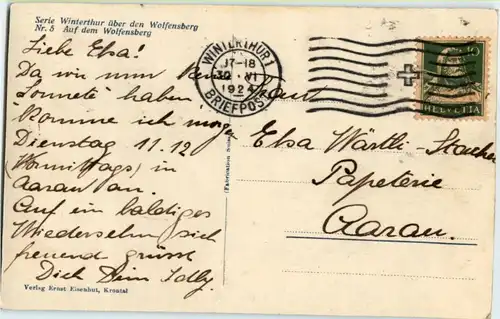 Serie Winterthur über den Wolfensberg
Nr. 8 Auf dem Wolfensberg
Liebe Elsa!
Da wir nun
haben
Komme ich
Dienstag 11.12
(Vormittags) in
Aarau an.
Auf ein baldiges
Wiedersehn sich
freuend grüsst
Dich Dein
Verlag Ernst Eisenhut, Krontal
WINTERTHUR 1
17-18
30. VI
192
BRIEFPOST
10
HELVETIA
Elsa Wärtli-
Papeterie
Aarau.